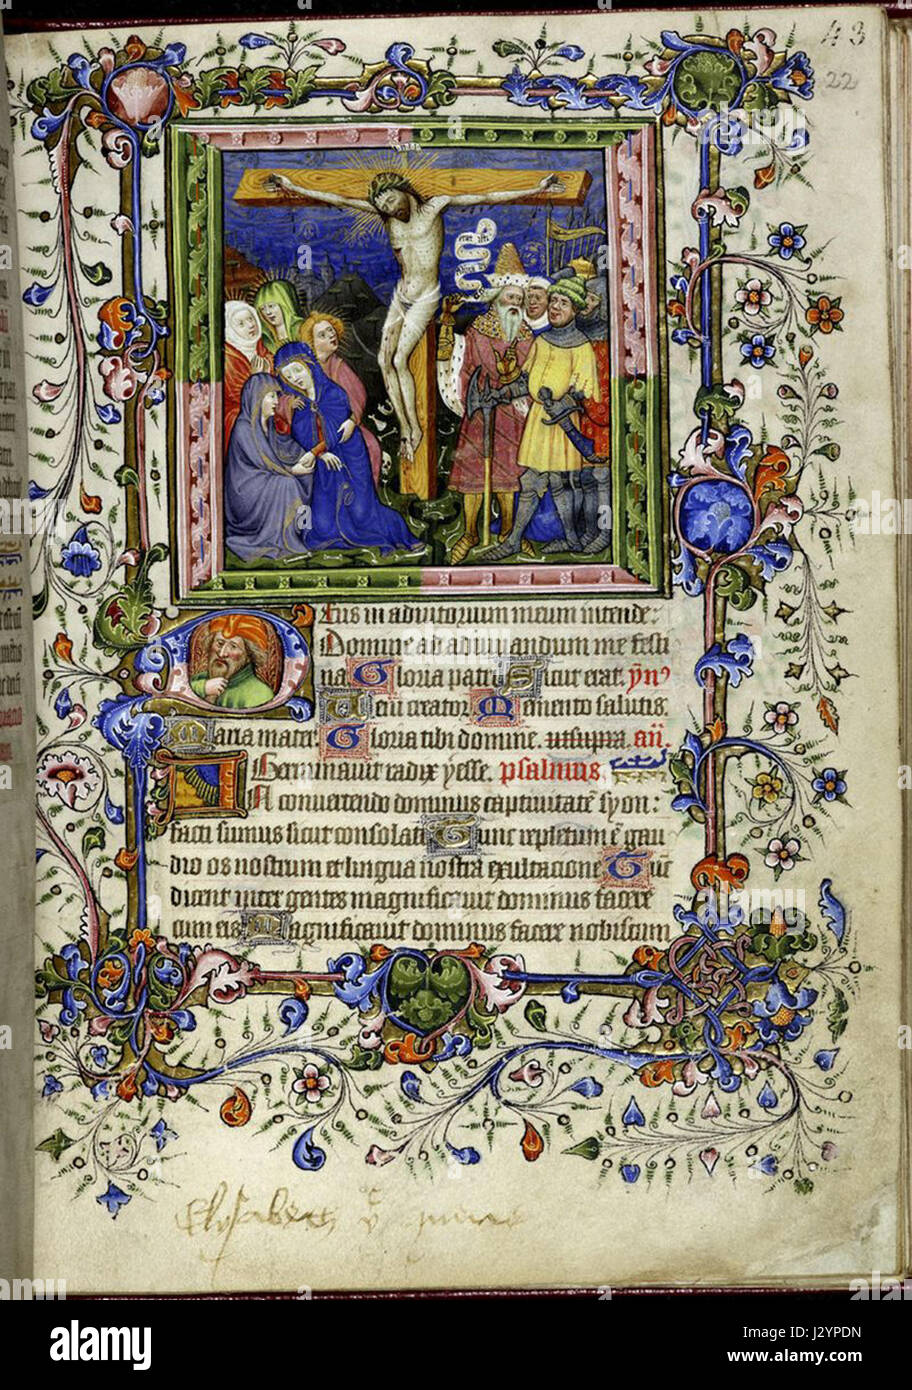 43
22
eus in adiutorium meum intende:
Domine ad adiuuandum me festi
na Gloria patri Sicut erat. ymº
Ueni creator Memento salutis.
Maria mater Gloria tibi domine. ut supra. añ.
Germinauit radix yesse. psalmus.
In conuertendo dominus captiuitatē syon:
facti sumus sicut consolati Tunc repletum ē gau
dio os nostrum et lingua nostra exultacione Tūc
dicent inter gentes magnificauit dominus facere
cum eis Magnificauit dominus facere nobiscum
Elysabeth
alamy stock photo
J2YPDN
www.alamy.com